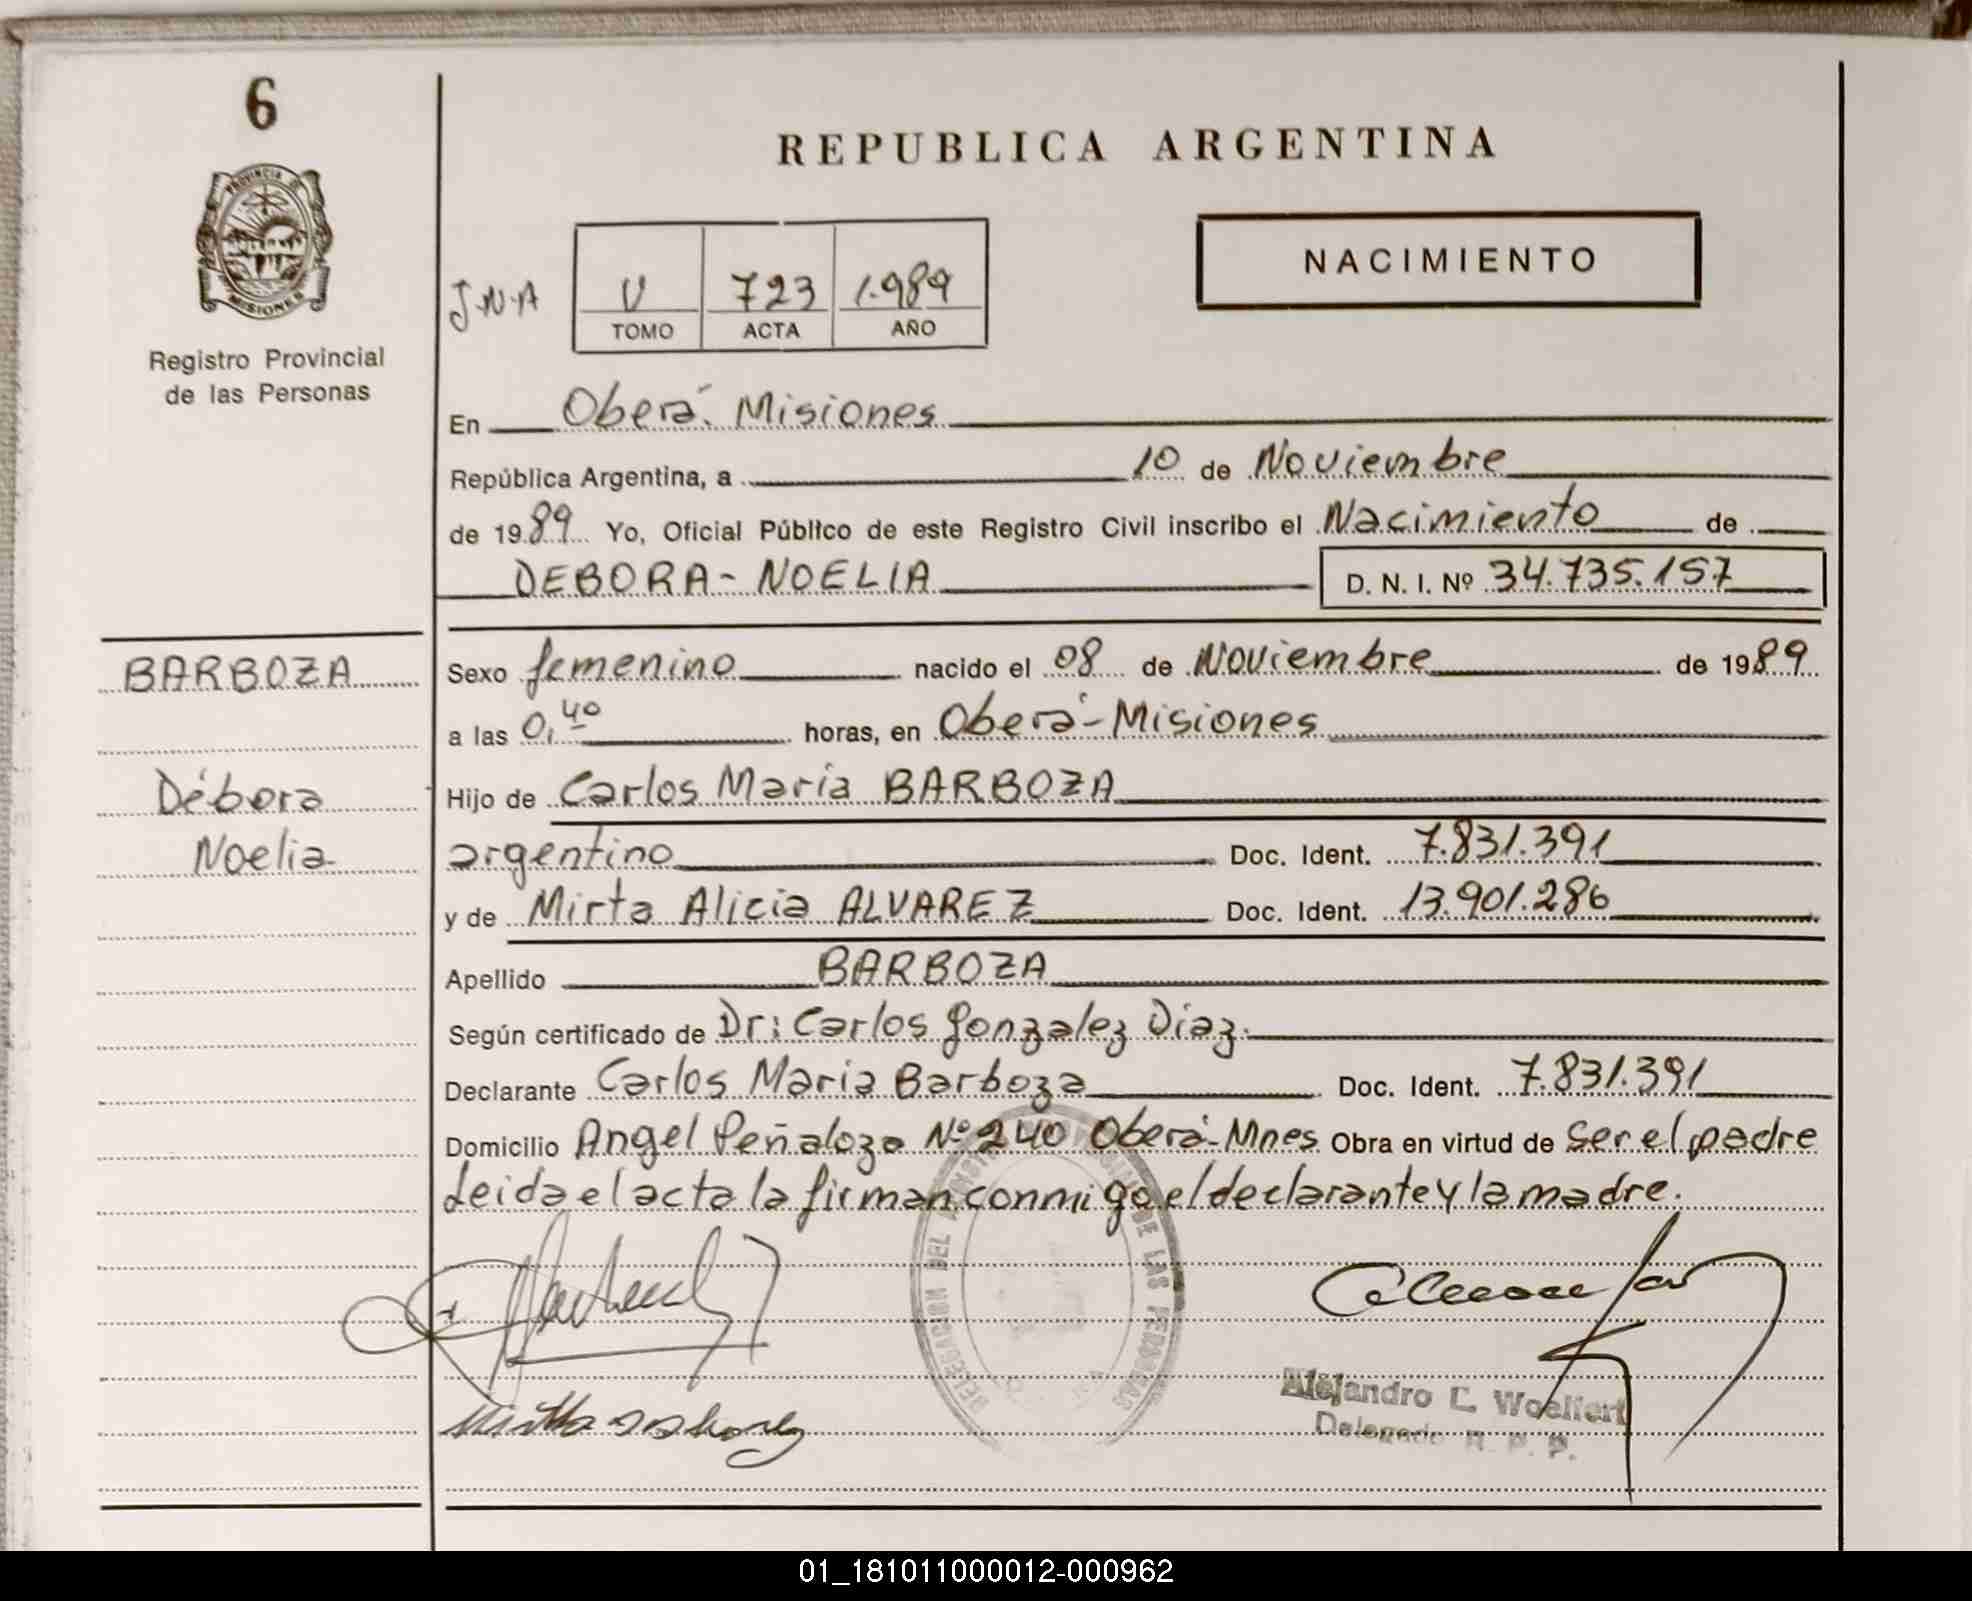 6
REPUBLICA ARGENTINA
PROVINCIA DE
MISIONES
Registro Provincial
de las Personas
J.N.A
V 723 1.989
TOMO ACTA AÑO
NACIMIENTO
En Oberá. Misiones
República Argentina, a 10 de Noviembre
de 1989 Yo, Oficial Público de este Registro Civil inscribo el Nacimiento de
DEBORA-NOELIA D. N. I. Nº 34.735.157
BARBOZA
Débora
Noelia
Sexo femenino nacido el 08 de Noviembre de 1989
a las 0,40 horas, en Oberá-Misiones
Hijo de Carlos Maria BARBOZA
argentino Doc. Ident. 7.831.391
y de Mirta Alicia ALVAREZ Doc. Ident. 13.901.286
Apellido BARBOZA
Según certificado de Dr: Carlos Gonzalez Diaz.
Declarante Carlos Maria Barboza Doc. Ident. 7.831.391
Domicilio Angel Peñalozo Nº 240 Oberá-Mnes Obra en virtud de Ser el padre
Leida el acta la firman conmigo el declarante y la madre.
DELEGACION DEL DE LAS PERSONAS
Alejandro L. Woelfert
Delegado R. P. P.
01_181011000012-000962